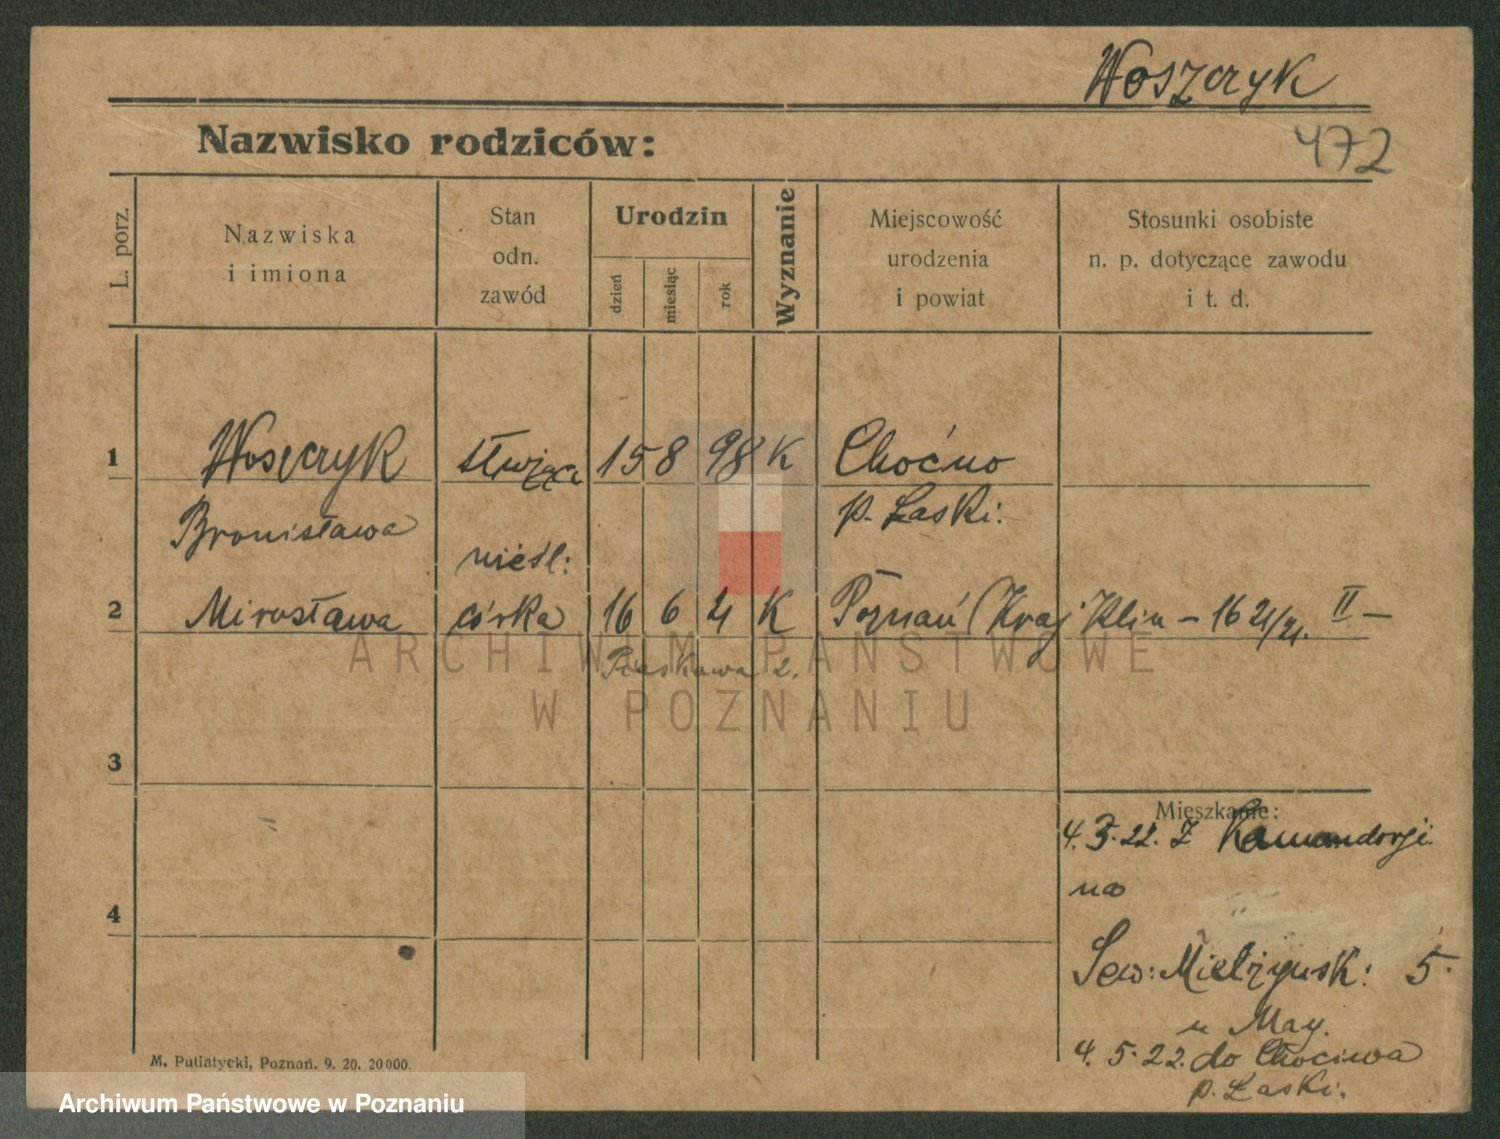 Woszczyk
Nazwisko rodziców:
472
L. porz.
Nazwiska
i imiona
Stan
odn.
zawód
Urodzin
dzień
miesiąc
rok
Wyznanie
Miejscowość
urodzenia
i powiat
Stosunki osobiste
n. p. dotyczące zawodu
i t. d.
1 Woszczyk służąca 15 8 98 K Choćno
Bronisława p. Łaski.
nieśl:
2 Mirosława córka 16 6 21 K Poznań (Kraj Klin – 16 21/21. II –
Piaskowa 2.
ARCHIWUM PAŃSTWOWE
W POZNANIU
3
Mieszkanie:
4. 3. 22. z Komandorji
na
4
Sew: Mielżyńsk: 5.
u May.
4. 5. 22. do Chociwa
p. Łaski.
M. Putiatycki, Poznań. 9. 20. 20000.
Archiwum Państwowe w Poznaniu